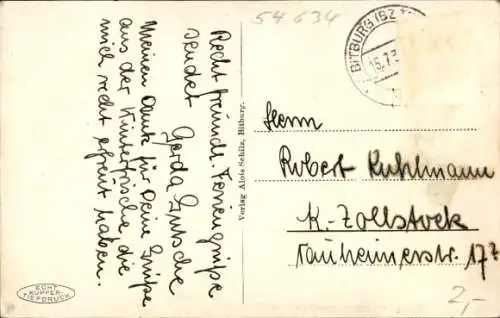 54 634
BITBURG (BZ T
15.7.3
Recht freundl. Feriengrüße
sendet Gerda
Meinen Dank für Deine Grüße
aus der Kinterfrische die
mich recht erfreut haben.
Verlag Alois Schilz, Bitburg.
Herrn
Robert Kuhlmann
K.-Zollstock
Tauheimerstr. 17
ECHT
KUPFER-
TIEFDRUCK
2,-